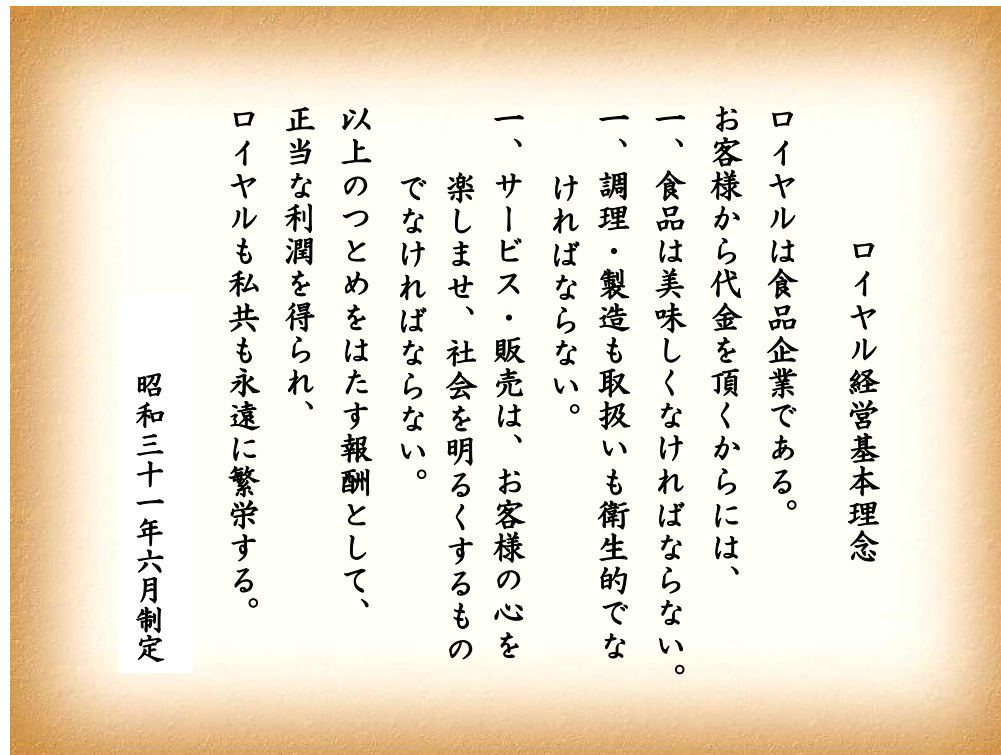 ロイヤル経営基本理念
ロイヤルは食品企業である。
お客様から代金を頂くからには、
一、食品は美味しくなければならない。
一、調理・製造も取扱いも衛生的でな
ければならない。
一、サービス・販売は、お客様の心を
楽しませ、社会を明るくするもの
でなければならない。
以上のつとめをはたす報酬として、
正当な利潤を得られ、
ロイヤルも私共も永遠に繁栄する。
昭和三十一年六月制定